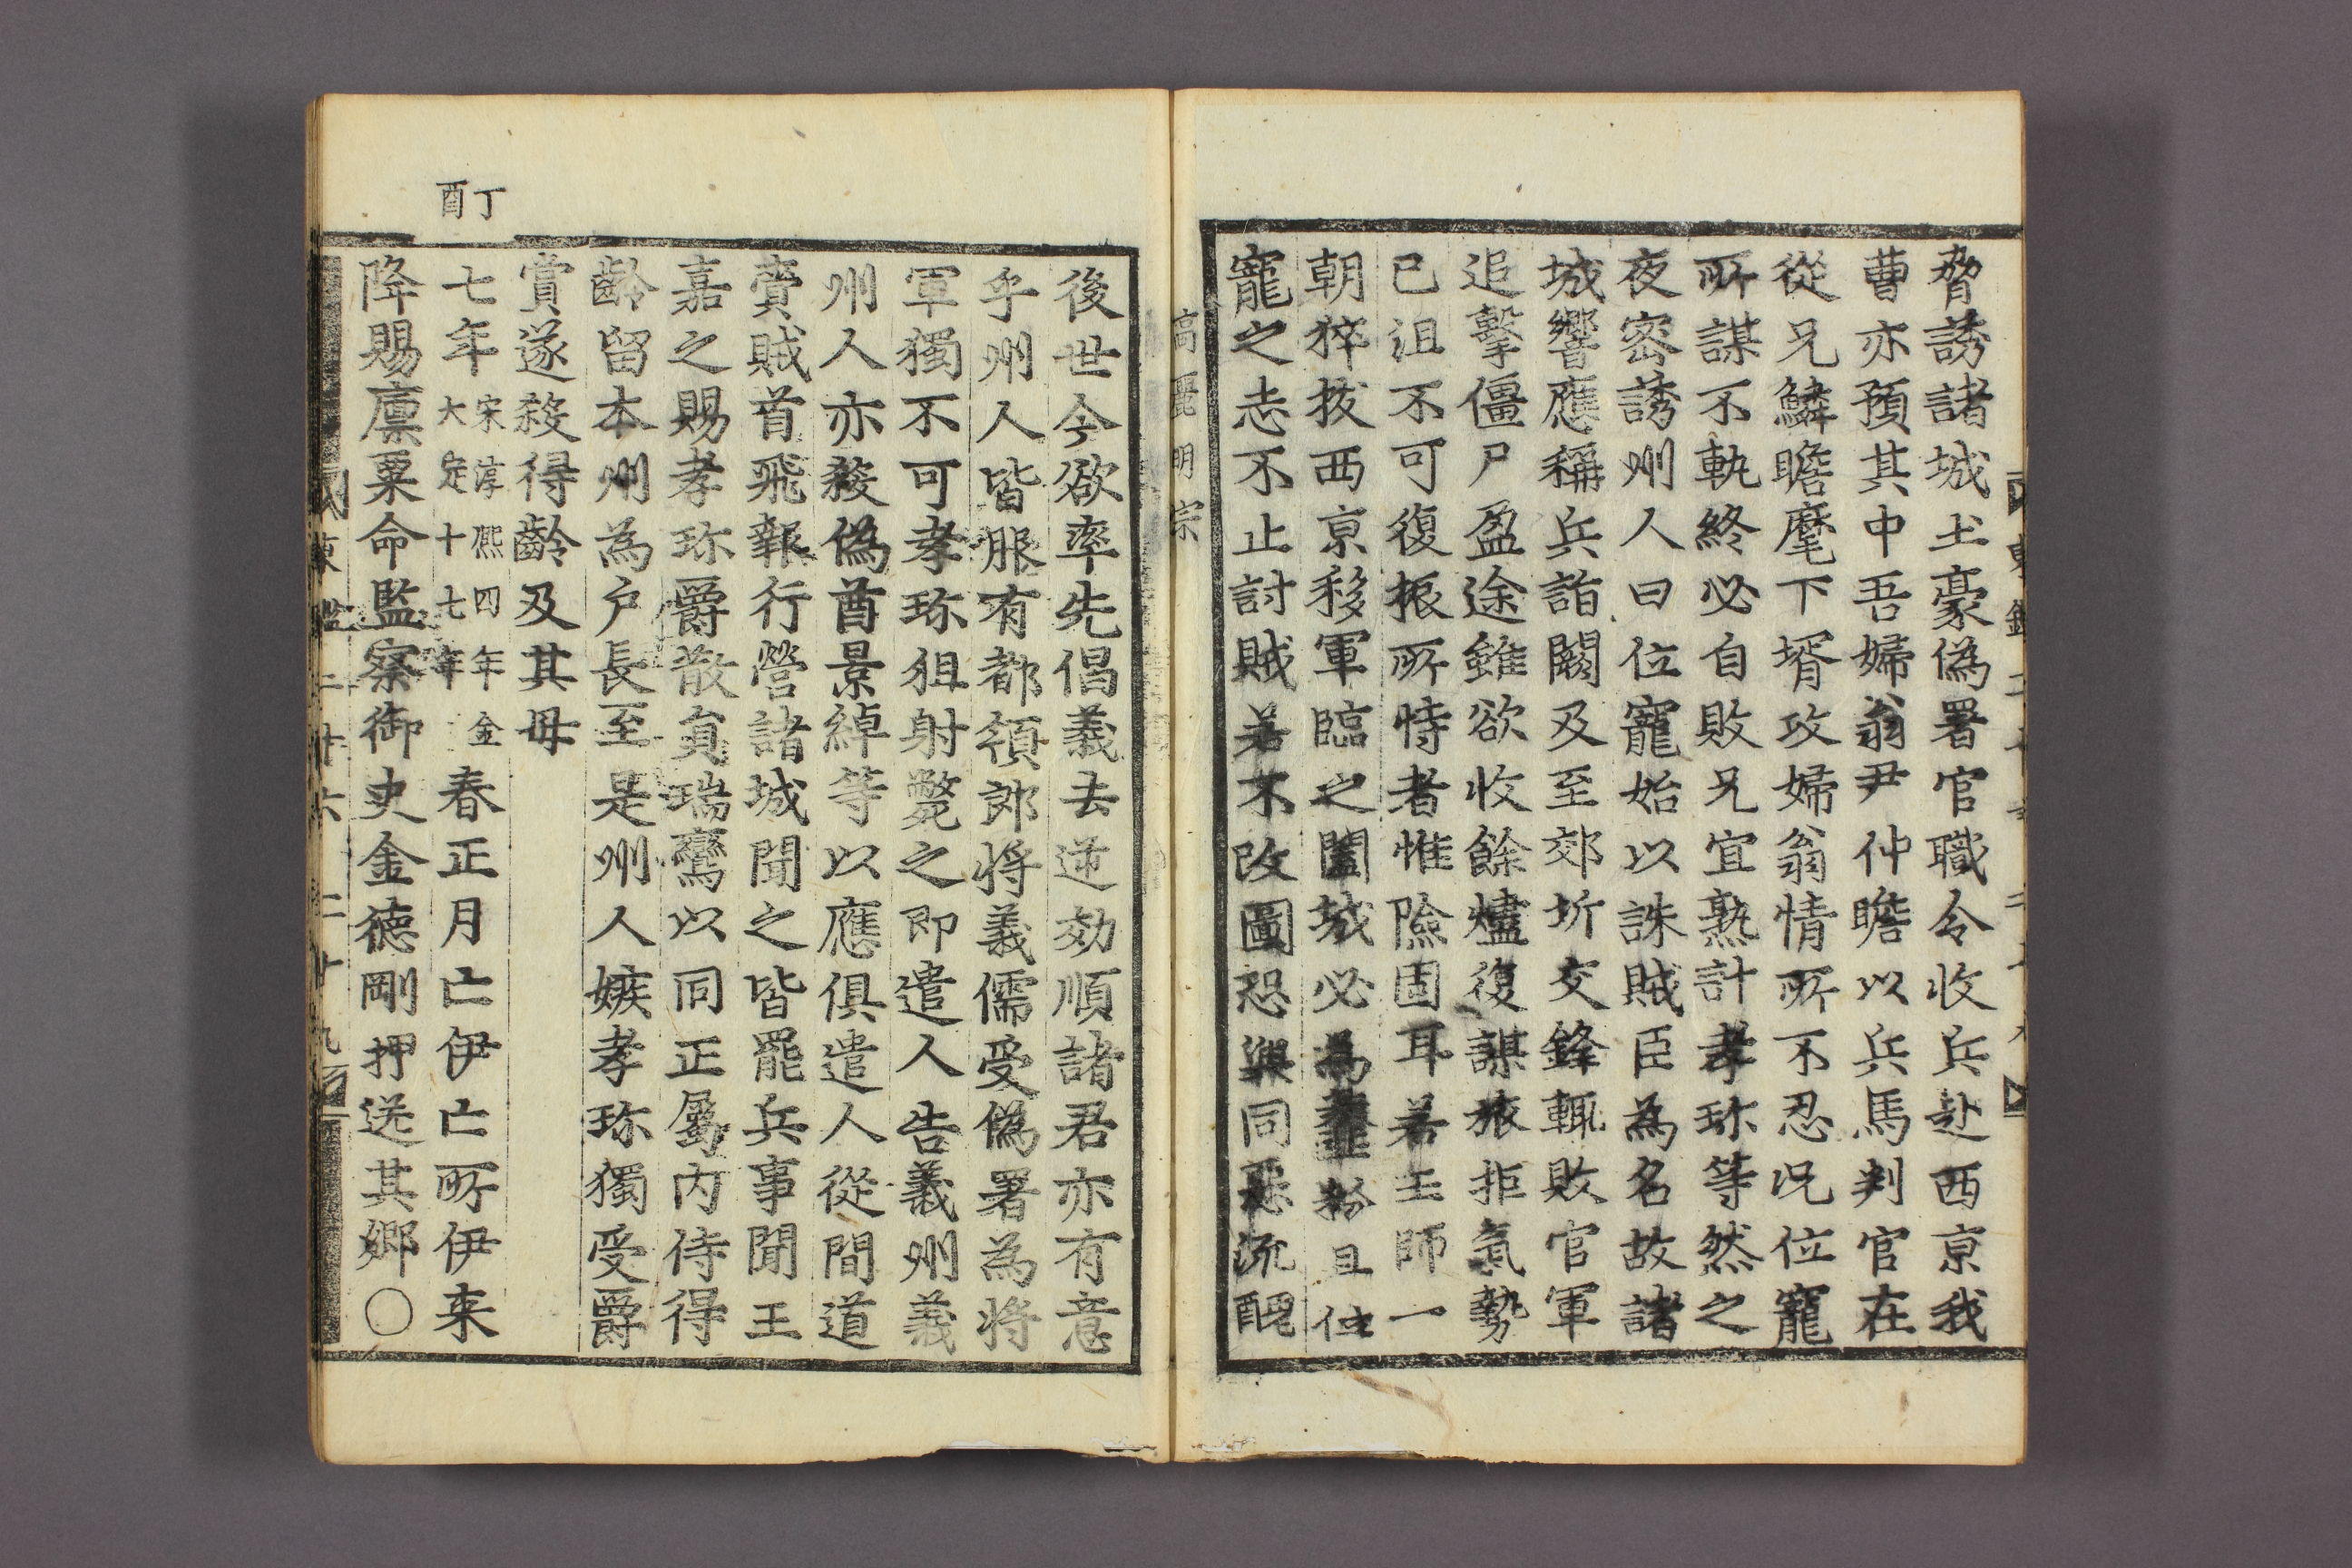 脅誘諸城土豪偽署官職令收兵赴西京我
曹亦預其中吾婦翁尹仲瞻以兵馬判官在
從兄鱗瞻麾下壻攻婦翁情所不忍况位寵
所謀不軌終必自敗兄宜熟計孝珎等然之
夜密誘州人曰位寵始以誅賊臣為名故諸
城響應稱兵詣闕及至郊圻交鋒輒敗官軍
追擊僵尸盈途雖欲收餘燼復謀旅拒氣勢
已沮不可復振所恃者惟險固耳若王師一
朝猝拔西京移軍臨之闔城必為虀粉且位
寵之志不止討賊若不改圖恐與同惡流醜
高麗明宗
後世今欲率先倡義去逆効順諸君亦有意
乎州人皆服有都領郎將義儒受偽署為將
軍獨不可孝珎狙射斃之即遣人告義州義
州人亦殺偽酋景綽等以應俱遣人從間道
賫賊首飛報行營諸城聞之皆罷兵事聞王
嘉之賜孝珎爵散員瑞鸞以同正屬內侍得
齡留本州為戶長至是州人嫉孝珎獨受爵
賞遂殺得齡及其母
丁酉
七年宋淳熈四年金大定十七年春正月亡伊亡所伊来
降賜廪粟命監察御史金德剛押送其鄉〇